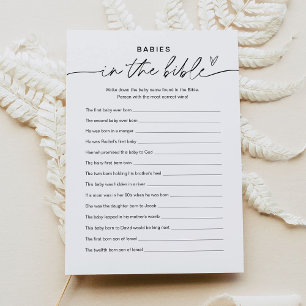 BABIES
in the bible
Write down the baby name found in the Bible.
Person with the most correct wins!
The first baby ever born
The second baby ever born
He was born in a manger
He was Rachel's first baby
Hannah promised this baby to God
The hairy first born twin
The twin born holding his brother's heel
This baby was hidden in a river
His mom was in her 90s when he was born
She was the daughter born to Jacob
The baby leaped in his mother's womb
This baby born to David would be king next
The first born son of Israel
The twelfth born son of Israel